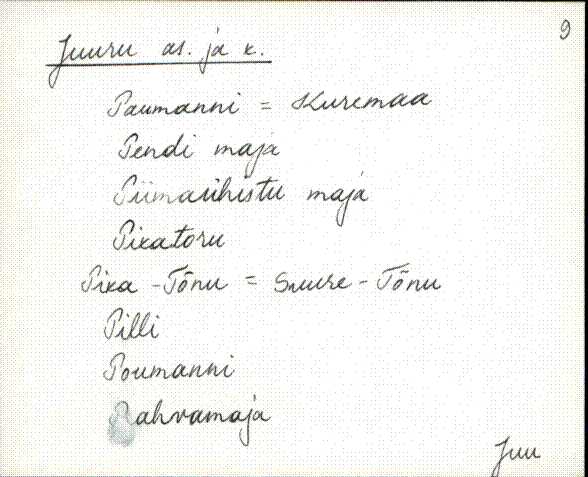 9
Juuru as. ja k.
Paumanni = Kuremaa
Pendi maja
Piimaühistu maja
Pikatoru
Pika-Tõnu = Suure-Tõnu
Pilli
Poumanni
Rahvamaja
Juu